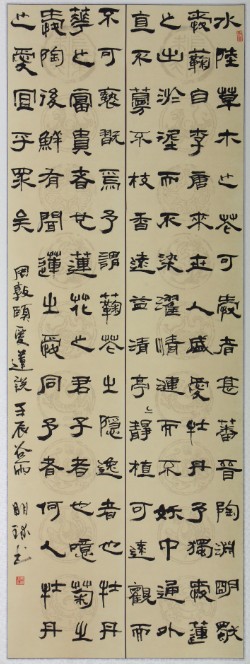 水陸草木之花可愛者甚蕃晉陶淵明獨
愛蘜自李唐來世人盛愛牡丹予獨愛蓮
之出淤泥而不染濯清漣而不妖中通外
直不蔓不枝香遠益清亭〻靜植可遠觀而
不可褻翫焉予謂蘜花之隱逸者也牡丹
華之富貴者也蓮花之君子者也噫菊之
愛陶後鮮有聞蓮之愛同予者何人牡丹
之愛宜乎眾矣 周敦頤愛蓮說壬辰谷雨 明